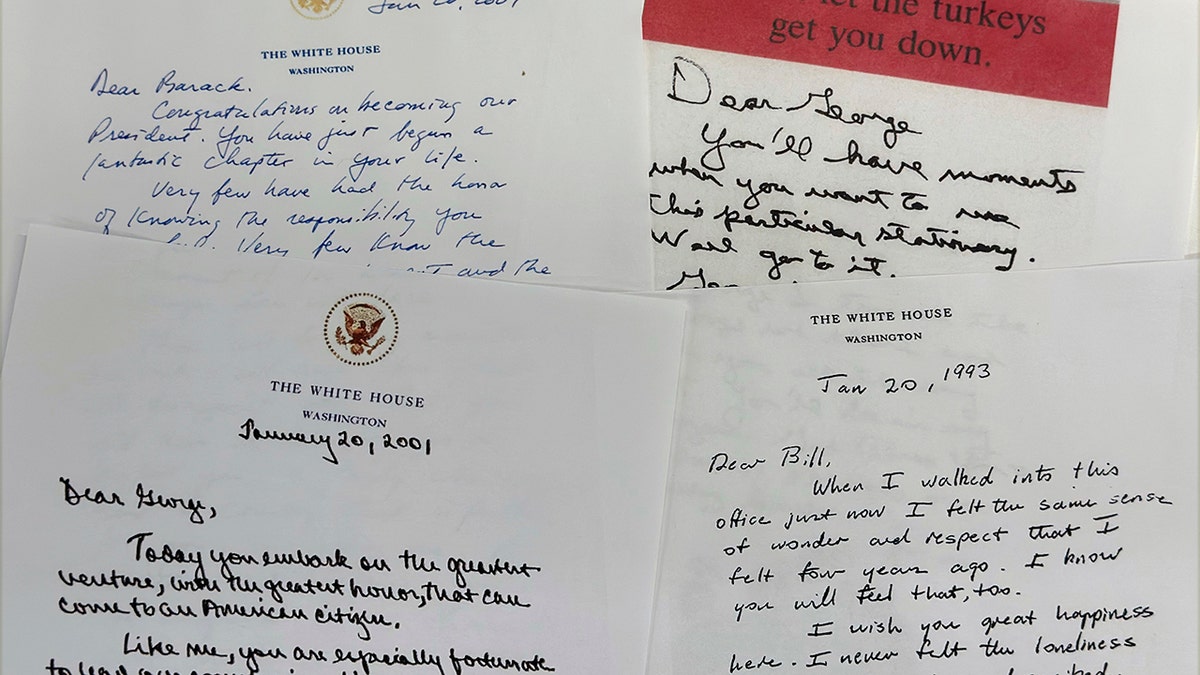 Jan 20, 2009
THE WHITE HOUSE
WASHINGTON
Dear Barack.
Congratulations on becoming our
President. You have just begun a
fantastic chapter in your life.
Very few have had the honor
of knowing the responsibility you
Very few know the
and the
let the turkeys
get you down.
Dear George
You'll have moments
when you want to use
this particular stationary.
Well go to it.
THE WHITE HOUSE
WASHINGTON
January 20, 2001
Dear George,
Today you embark on the greatest
venture, with the greatest honor, that can
come to an American citizen.
Like me, you are especially fortunate
to lead our
THE WHITE HOUSE
WASHINGTON
Jan 20, 1993
Dear Bill,
When I walked into this
office just now I felt the same sense
of wonder and respect that I
felt four years ago. I know
you will feel that, too.
I wish you great happiness
here. I never felt the loneliness